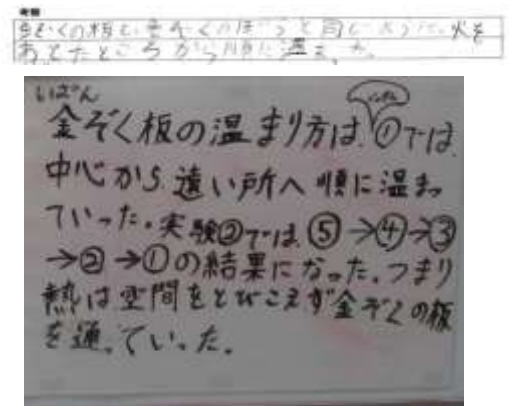 考察
金ぞくの板も、金ぞくのぼうと同じように、火を
あてたところから順に温まった。
しばん
金ぞく板の温まり方は、①では、
中心から遠い所へ順に温まっ
ていった。実験②では、⑤→④→③
→②→①の結果になった。つまり
熱は空間をとびこえず金ぞくの板
を通っていった。